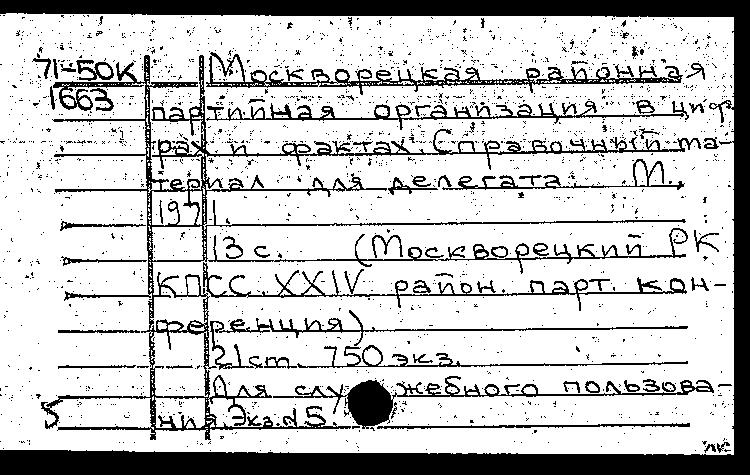 71-50К Москворецкая районная
1663 партийная организация в циф
рах и фактах. Справочный ма-
териал для делегата. М.,
1971.
13 с. (Москворецкий РК
КПСС. XXIV район. парт. кон-
ференция).
21 cm. 750 экз.
Для служебного пользова-
5 ния. Экз. N 5.